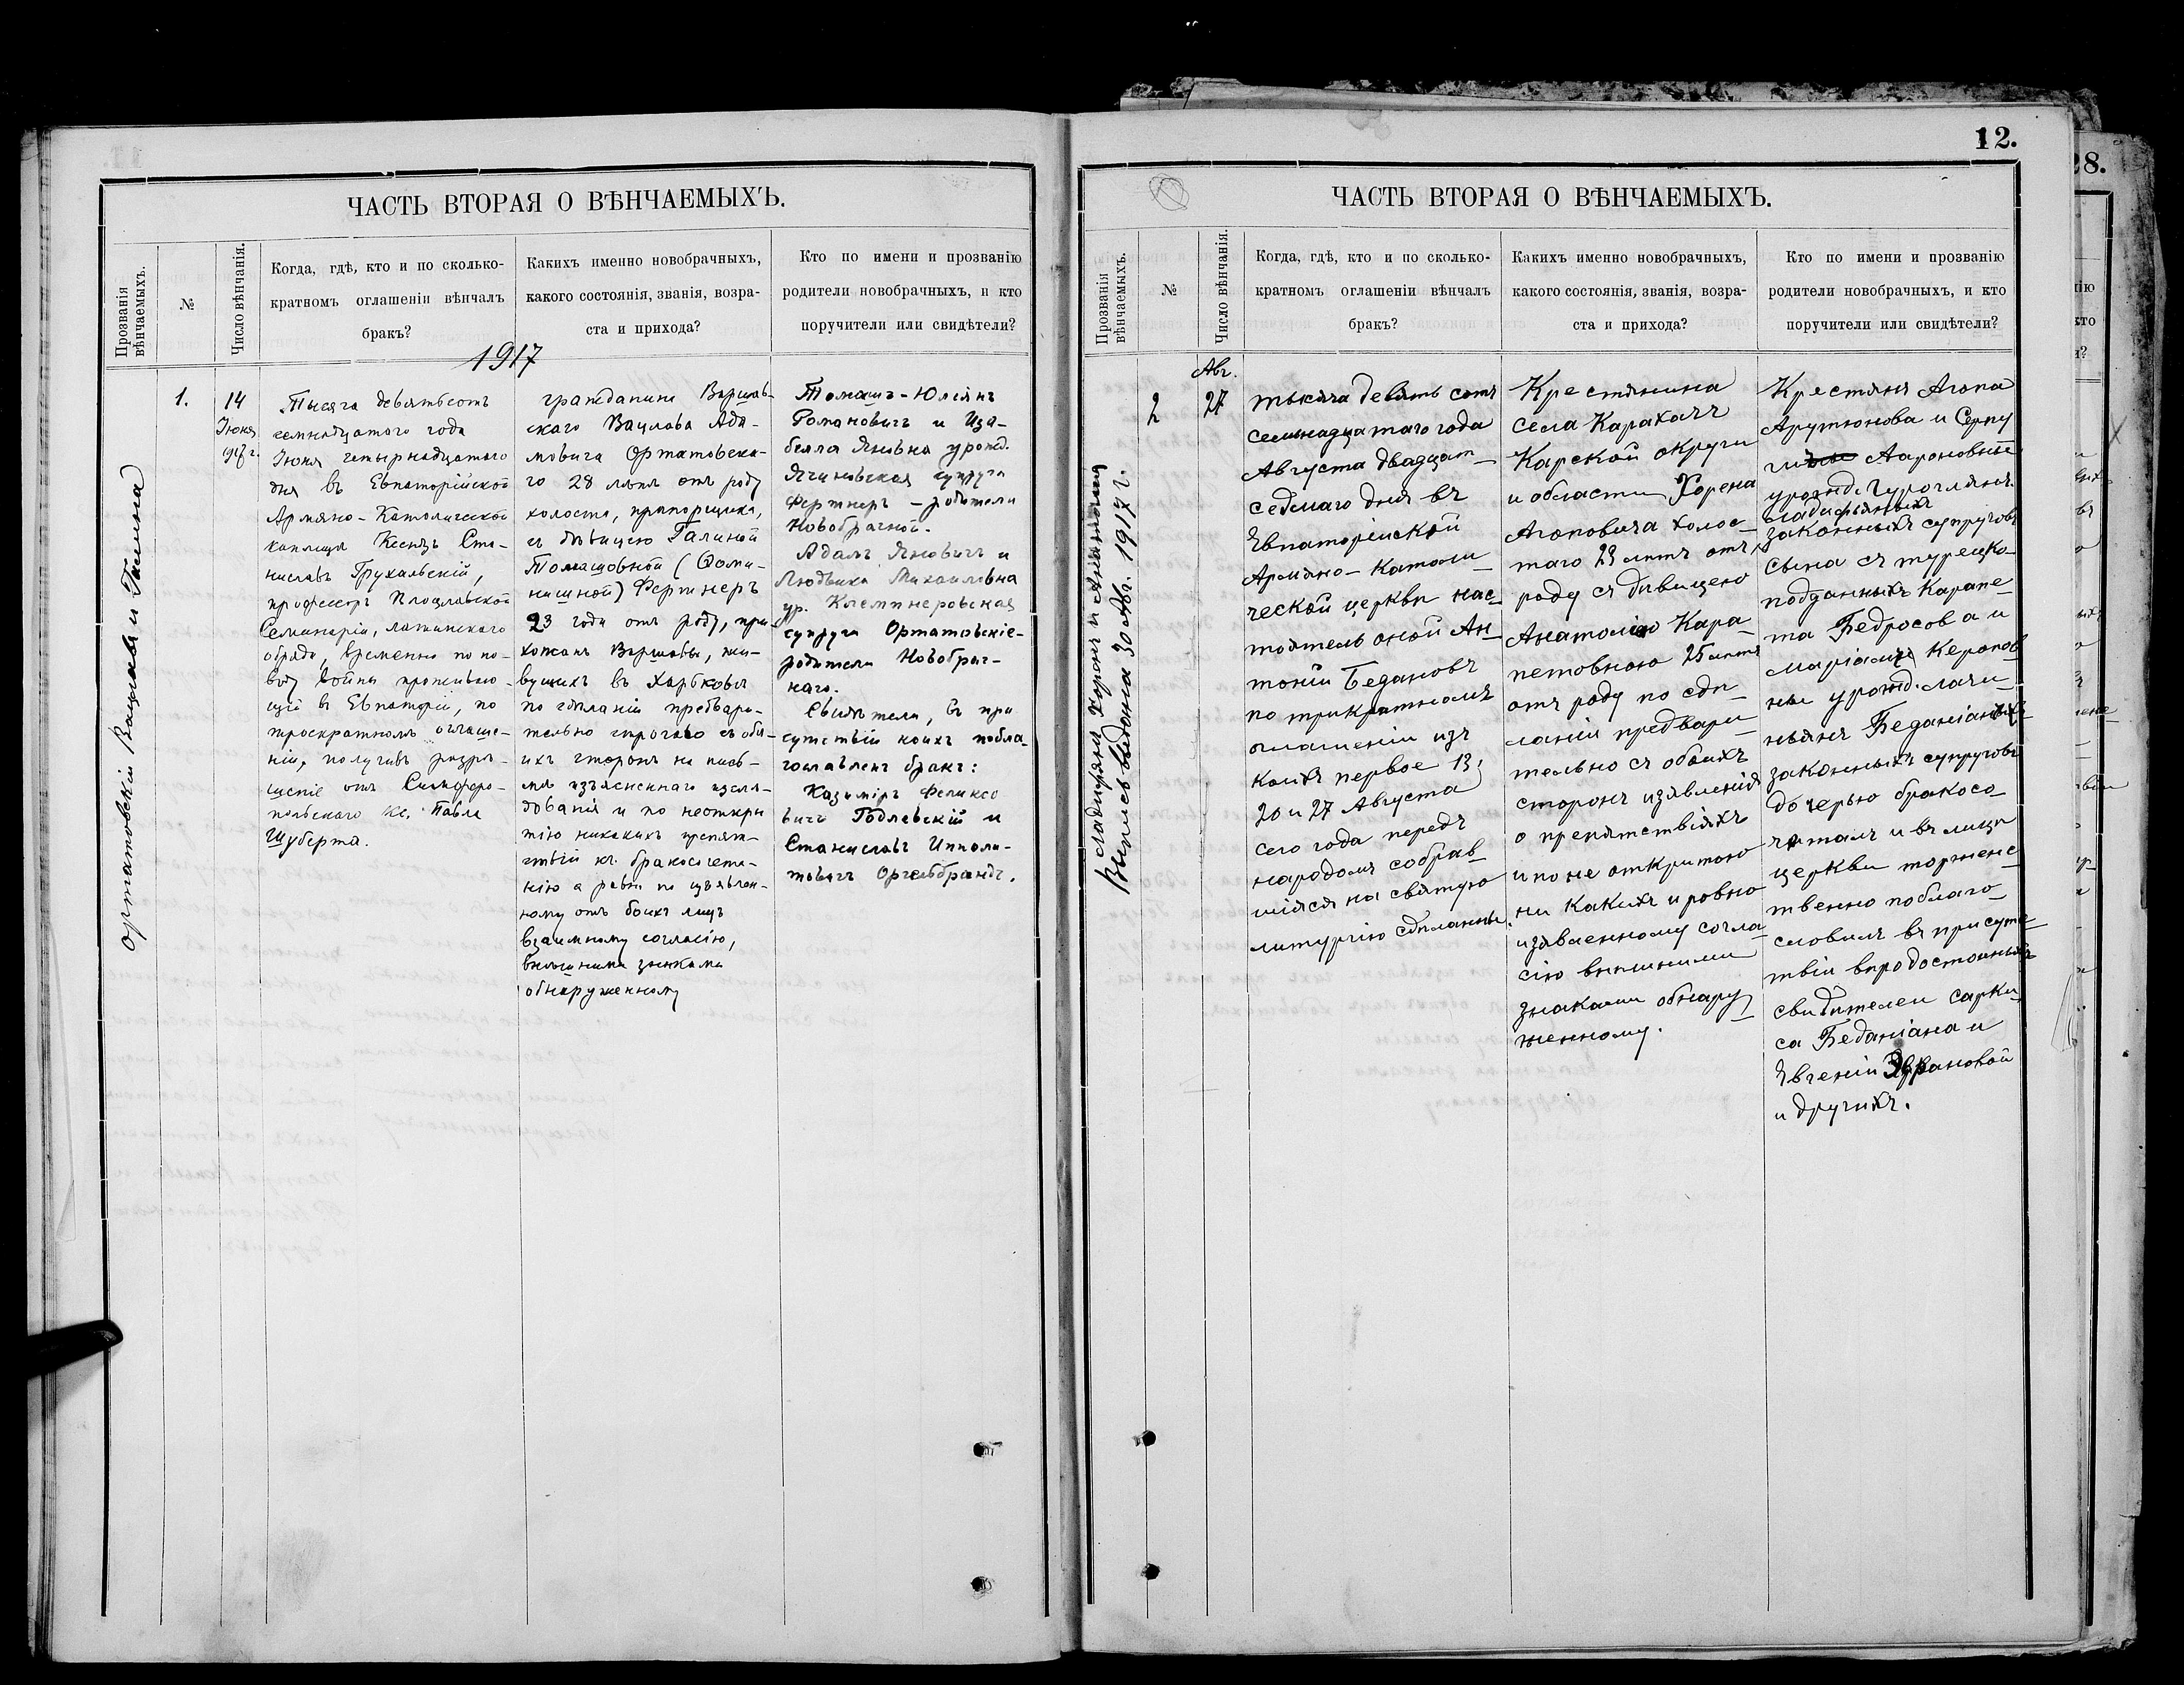 ЧАСТЬ ВТОРАЯ О ВѢНЧАЕМЫХЪ.
Прозванія вѣнчаемыхъ.
№
Число вѣнчанія.
Когда, гдѣ, кто и по сколько-
кратномъ оглашеніи вѣнчалъ
бракъ?
Какихъ именно новобрачныхъ,
какого состоянія, званія, возра-
ста и прихода?
Кто по имени и прозванію
родители новобрачныхъ, и кто
поручители или свидѣтели?
1917
Ортатовскій Вацлавъ и Галина
1.
14
Іюня
1917 г.
Тысяча девятьсотъ
семнадцатого года
Іюня четырнадцатого
дня въ Евпаторійской
Армяно-Католической
каплицѣ Ксендзъ Ста-
ниславъ Грухальскій,
профессоръ Влоцлавской
Семинаріи, латинского
обряда, временно по по-
воду войны проживаю-
щій в Евпаторіи, по
троекратномъ оглаше-
ніи, получивъ разрѣ-
шеніе отъ Симферо-
польского кс. Павла
Шуберта.
гражданина Варшав-
скаго Вацлава Ада-
мовича Ортатовска-
го 28 лѣтъ отъ роду
холоста, прапорщика,
съ дѣвицею Галиной
Томашовной (Фоми-
нишной) Фертнеръ
23 года отъ роду, при-
хожанъ Варшавы, жи-
вущихъ въ Харьковѣ
по сдѣланіи предвари-
тельно строгаго съ обѣ-
ихъ сторонъ на пись-
мѣ изъясненнаго изслѣ-
дованія и по неоткры
тію никакихъ препят-
ствій къ бракосочета-
нію а равно по изъявлен-
ному отъ обоихъ лицъ
взаимному согласію,
внѣшними знаками
обнаруженному
Томашъ-Юліянъ
Романовичъ и Иза-
белла Яновна урожд.
Ячиновская супруги
Фертнеръ - родители
Новобрачной.
Адамъ Яновичъ и
Людвика Михайловна
ур. Клемпнеровская
супруги Ортатовскіе-
родители Новобрач-
наго.
Свидѣтели, въ при
сутствіи коихъ побла-
гославленъ бракъ:
Казиміръ Феликсо
вичъ Годлевскій и
Станиславъ Ипполи-
товичъ Оргельбрандъ.
12.
ЧАСТЬ ВТОРАЯ О ВѢНЧАЕМЫХЪ.
Прозванія вѣнчаемыхъ.
№
Число вѣнчанія.
Когда, гдѣ, кто и по сколько-
кратномъ оглашеніи вѣнчалъ
бракъ?
Какихъ именно новобрачныхъ,
какого состоянія, званія, возра-
ста и прихода?
Кто по имени и прозванію
родители новобрачныхъ, и кто
поручители или свидѣтели?
Хоренъ и
Выпись выдана 30 Авг. 1917 г.
2
Авг.
27
тысяча девять сотъ
семьнадцатаго года
Августа двадцат-
седмаго дня въ
Евпаторійской
Армяно-Католи-
ческой церкви нас-
тоятель оной Ан-
тоній Бедановъ
по трикратномъ
оглашеніи изъ
коихъ первое 13,
20 и 27 Августа
сего года передъ
народомъ собрав-
шійся на святую
литургію сдѣланны.
Крестянина
села Карахачъ
Карской округи
и области Хорена
Агоповича холос-
таго 23 лѣтъ отъ
роду съ дѣвицею
Анатоліею Кара-
петовною 25 лѣтъ
отъ роду по сдѣ-
ланіи предвари-
тельно съ обоихъ
сторонъ изявленія
о препятствіяхъ
и по не открытою
ни какихъ и ровно
изявленному согла-
сію внѣшними
знаками обнару-
женному.
Крестянъ Агопа
Арутюнова и Серпу
Аароновные
урожд.
законныхъ супруговъ
сына съ турецко-
подданныхъ Карапе-
та Бедросова и
Маріамы Керопов-
ны урожд. Лачи-
ньянъ Беданіановыхъ
законныхъ супруговъ
дочерью бракосо-
четалъ и въ лицѣ
церкви торжест-
твенно поблаго-
словилъ въ присутс-
твіи вѣродостойныхъ
свидѣтелей Сарки-
са Беданіана и
Евгеніи
и другихъ.
28.